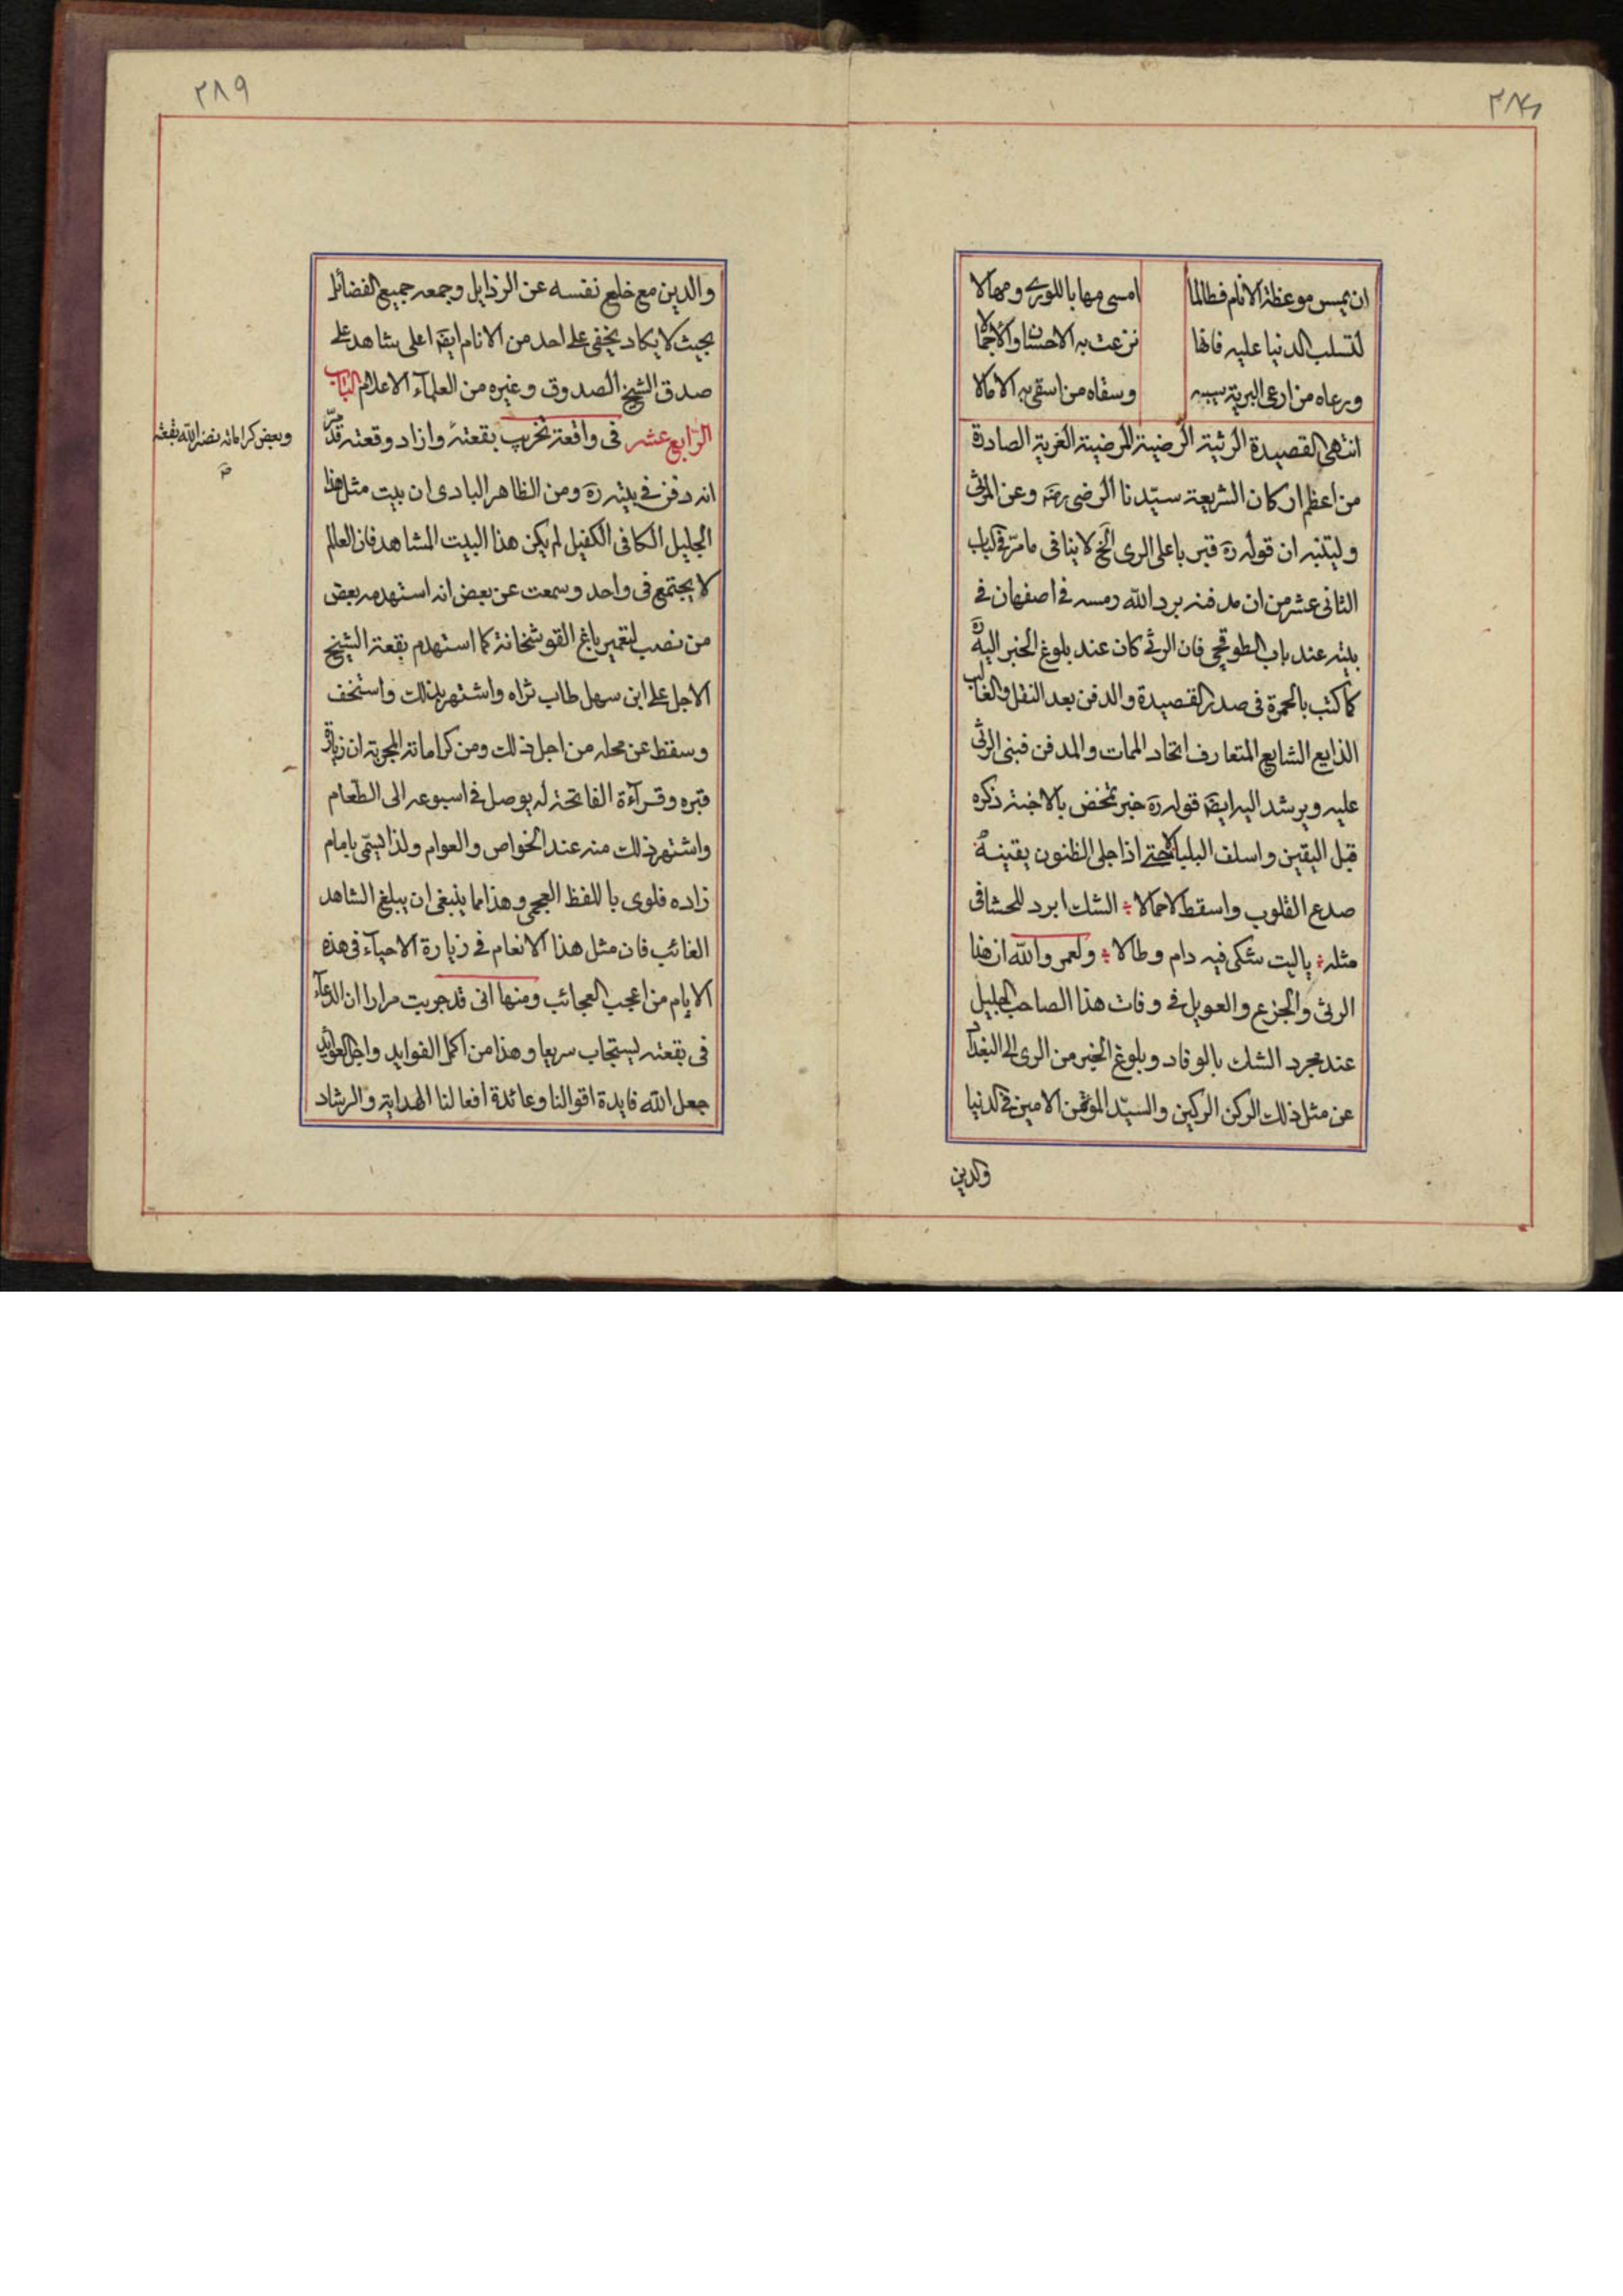 ان يمس موعظة الانام فطالما امسى مهابا للورى ومهالا
لتسلب الدنيا عليه فانها نزعت به الاحسان والاجمالا
ورعاه من ارعى البرية سيبه وسقاه من اسقى به الامالا
انتهى القصيدة الرثية الرضية المرضية الغرية الصادرة
من اعظم اركان الشريعة سيّدنا الرضى رضه وعن المرثى
وليتنبه ان قوله ره قبر باعلى الرى الخ لا ينافى ما مرّ فى كتاب
الثانى عشر من ان مدفنه برد الله رمسه فى اصفهان فى
بيته عند باب الطوقچى فان الرثى كان عند بلوغ الخبر اليه ره
كما كتب بالحمرة فى صدر القصيدة والدفن بعد النقل والغالب
الذايع الشايع المتعارف اتحاد الممات والمدفن فبنى الرثى
عليه ويرشد اليه ايضا قوله ره خبر تمخض بالاجنة ذكره
قبل اليقين واسلف البلبالا حتى اذا جلى الظنون يقينه
صدع القلوب واسقط الاحمالا الشك ابرد للحشا فى
مثله ياليت شكى فيه دام وطالا ولعمر والله ان هذا
الرثى والجزع والعويل فى وفات هذا الصاحب الجليل
عند مجرد الشك بالوفاد وبلوغ الخبر من الرى الى البغداد
عن مثل ذلك الركن الركين والسيّد المؤتمن الامين فى الدنيا
والدين
٣٨٩
والدين مع خلع نفسه عن الرذايل وجمعه جميع الفضائل
بحيث لا يكاد يخفى على احد من الانام ايضا اعلى شاهد على
صدق الشيخ الصدوق وغيره من العلماء الاعلام الباب
الرابع عشر فى واقعة تخريب بقعته وازاد وقعته قدّ سرّ
انه دفن فى بيته ره ومن الظاهر البادى ان بيت مثل هذا
الجليل الكافى الكفيل لم يكن هذا البيت المشاهد فان العالم
لا يجتمع فى واحد وسمعت عن بعض انه استهدمه بعض
من نصب لتعمير باغ القوشخانة كما استهدم بقعة الشيخ
الاجل على ابن سهل طاب ثراه واشتهر بذلك واستخف
وسقط عن محله من اجل ذلك ومن كراماته المجربة ان زيارة
قبره وقرآءة الفاتحة له يوصل فى اسبوعه الى الطعام
واشتهر ذلك منه عند الخواص والعوام ولذا يسمّى بامام
زاده فلوى باللفظ العجمى وهذا مما ينبغى ان يبلغ الشاهد
الغائب فان مثل هذا الانعام فى زيارة الاحيآء فى هذه
الايام من اعجب العجائب ومنها انى قد جربت مرارا ان الدعآء
فى بقعته ليستجاب سريعا وهذا من اكمل الفوايد واجل العوايد
جعل الله فايدة اقوالنا وعائدة افعالنا الهداية والرشاد
وبعض كراماته نضر الله بقعته